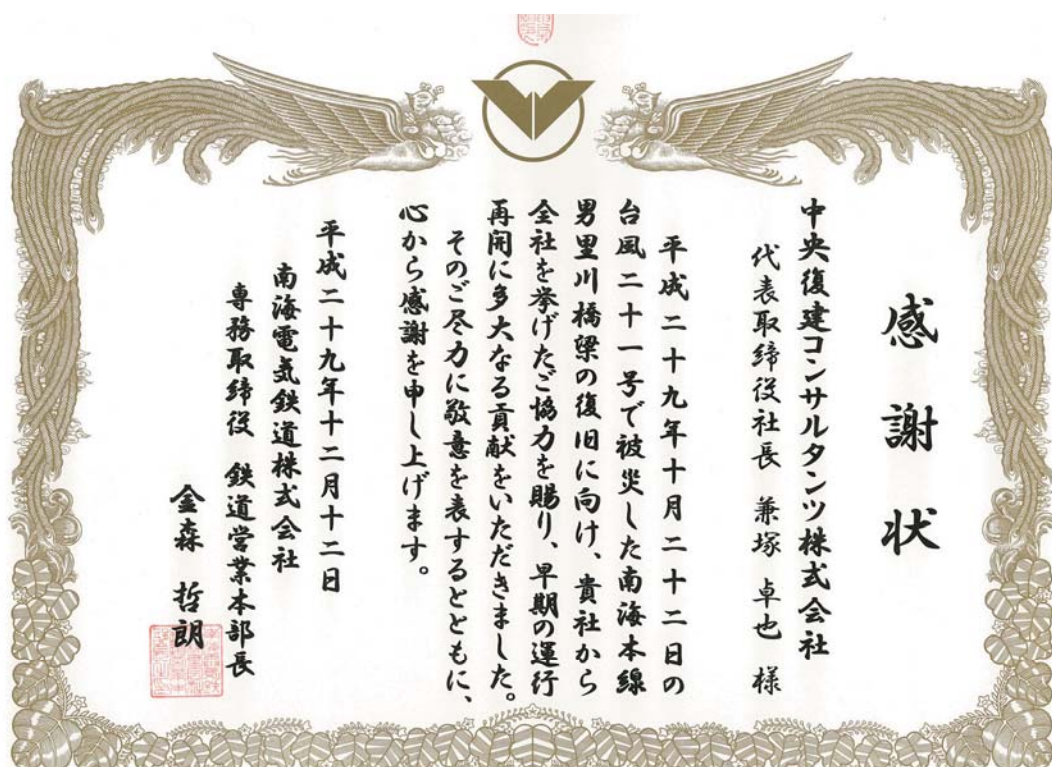 感謝状
中央復建コンサルタンツ株式会社
代表取締役社長 兼塚 卓也 様
平成二十九年十月二十二日の
台風二十一号で被災した南海本線
男里川橋梁の復旧に向け、貴社から
全社を挙げたご協力を賜り、早期の運行
再開に多大なる貢献をいただきました。
そのご尽力に敬意を表するとともに、
心から感謝を申し上げます。
平成二十九年十二月十二日
南海電気鉄道株式会社
専務取締役 鉄道営業本部長
金森 哲朗